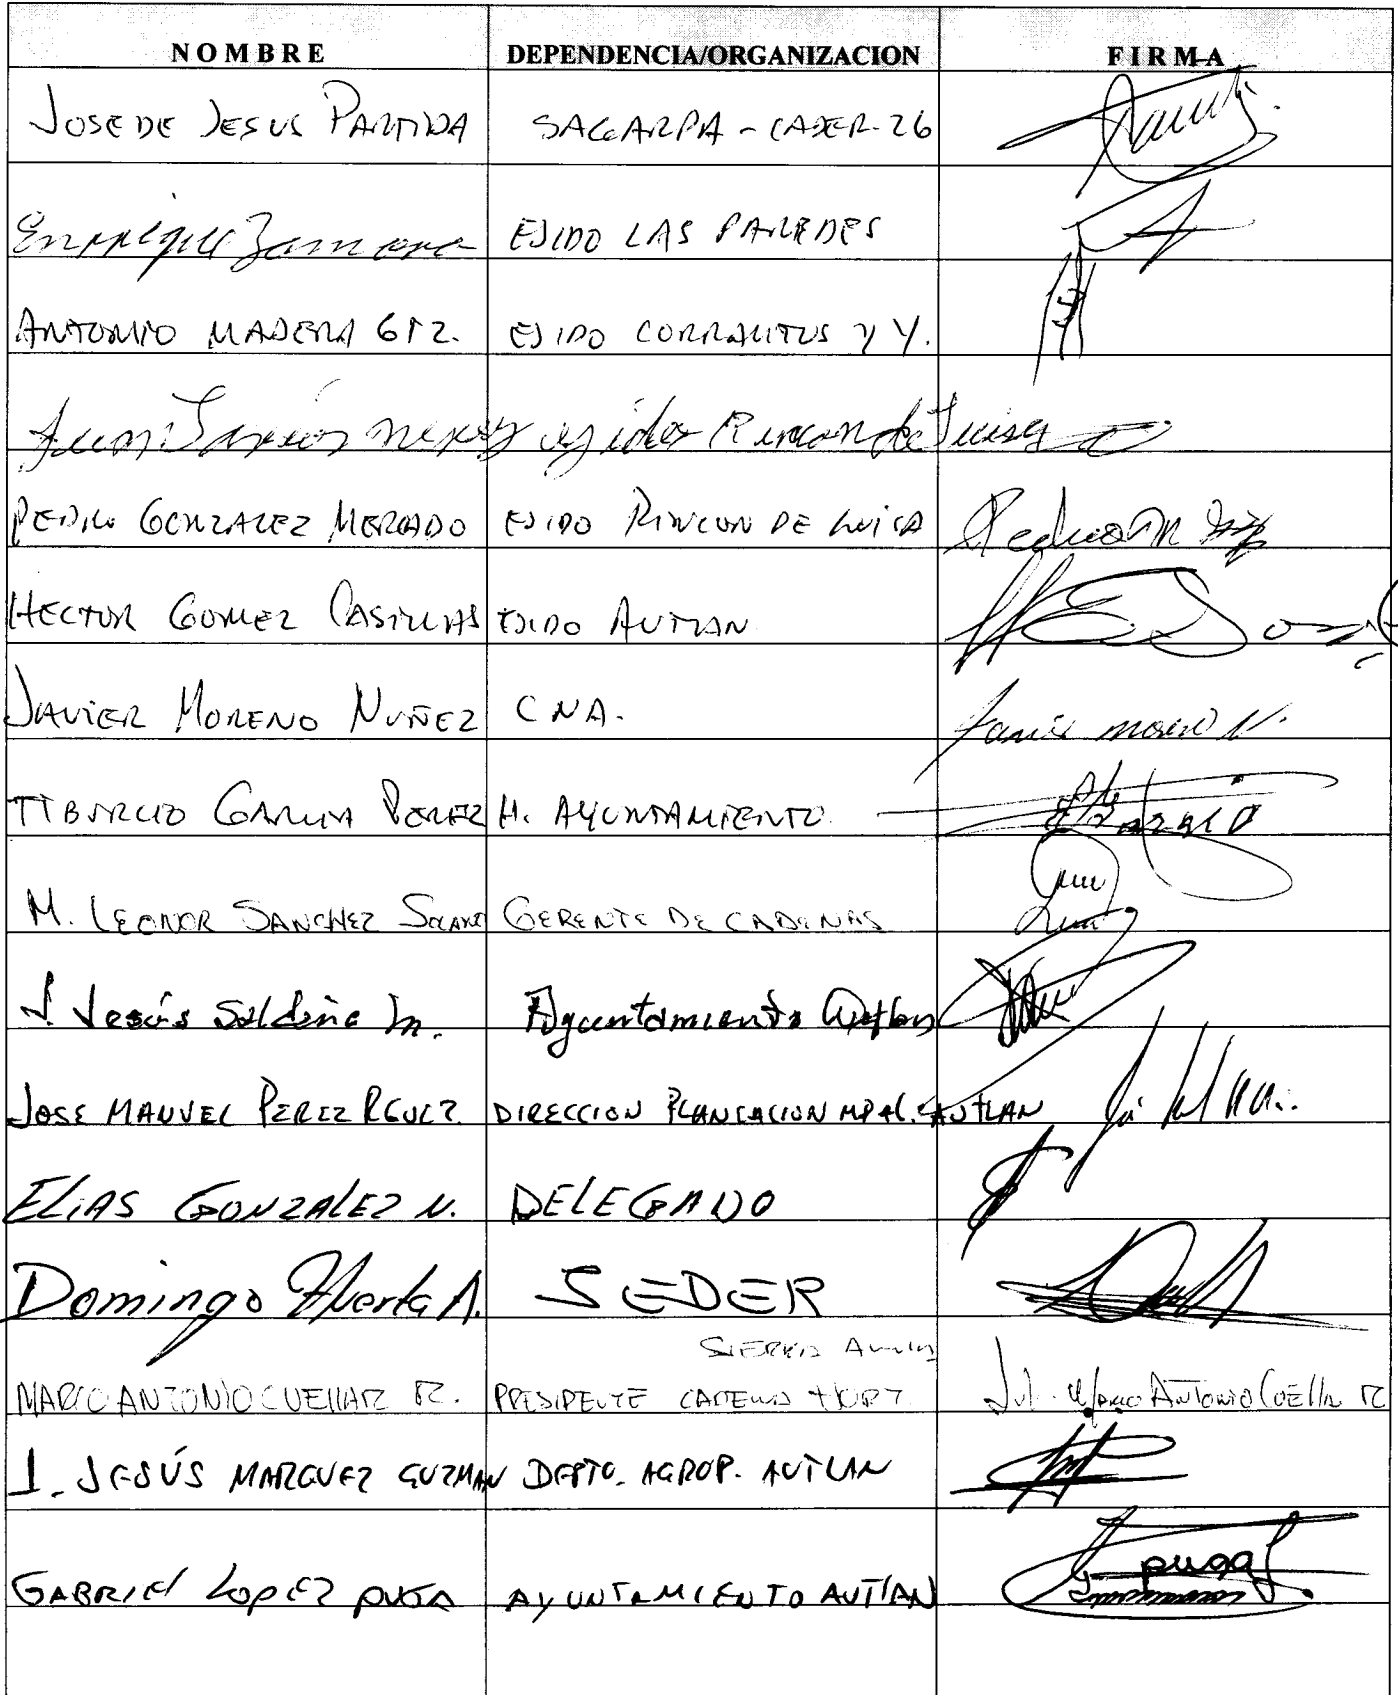 NOMBRE DEPENDENCIA/ORGANIZACION FIRMA
JOSE DE JESUS PARTIDA SAGARPA - CADER-26
Enrrique Zamora EJIDO LAS PAREDES
ANTONIO MADERA GTZ. EJIDO CORRALITOS Y Y.
Juan ejido Rincon de Luisa
PEDRO GONZALEZ MERCADO EJIDO RINCON DE LUISA Pedro M
HECTOR GOMEZ CASILLAS EJIDO AUTLAN
JAVIER MORENO NUÑEZ CNA. Javier moreno N.
TIBURCIO GARCIA PEREZ H. AYUNTAMIENTO
M. LEONOR SANCHEZ SOLANO GERENTE DE CADENAS
J. Jesús Saldaña M. Ayuntamiento Autlan
JOSE MANUEL PEREZ RGUEZ. DIRECCION PLANEACION MPAL. AUTLAN
ELIAS GONZALEZ N. DELEGADO
Domingo Huerta A. SEDER
SIERRA AMULA
MARCO ANTONIO CUELLAR R. PRESIDENTE CADENA HORT Marco ANTONIO CUELLAR R
J. JESÚS MARQUEZ GUZMAN DEPTO. AGROP. AUTLAN
GABRIEL LOPEZ PUGA AYUNTAMIENTO AUTLAN puga